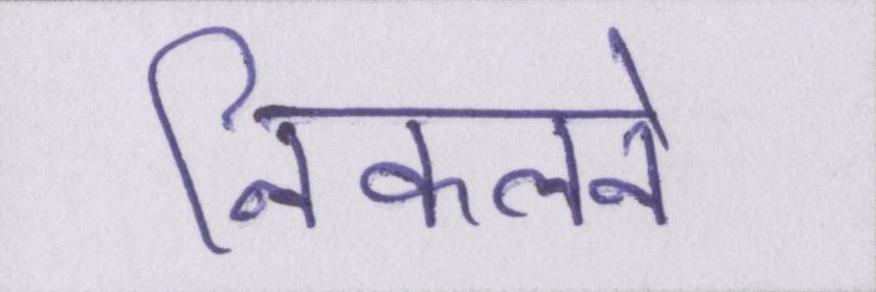 निकलने